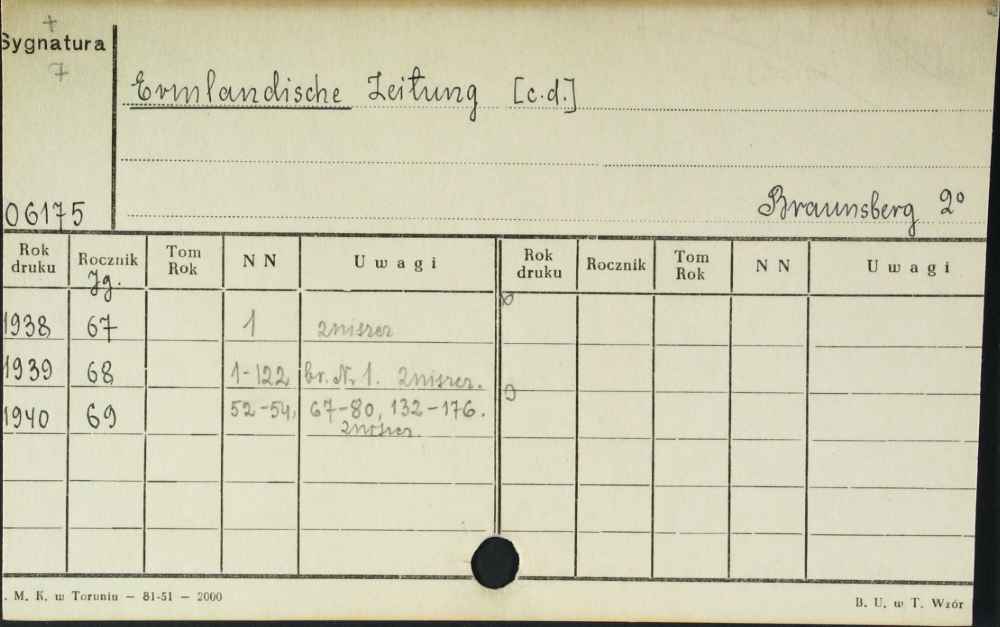 +
Sygnatura
7
Ermlandische Zeitung [c.d.]
06175
Braunsberg 2º
Rok druku Rocznik Tom Rok N N Uwagi Rok druku Rocznik Tom Rok N N Uwagi
Jg.
1938 67 1 zniszcz
1939 68 1-122 br. Nr 1. zniszcz.
1940 69 52-54, 67-80, 132-176.
zniszcz.
. M. K. w Toruniu — 81-51 — 2000
B. U. w T. Wzór